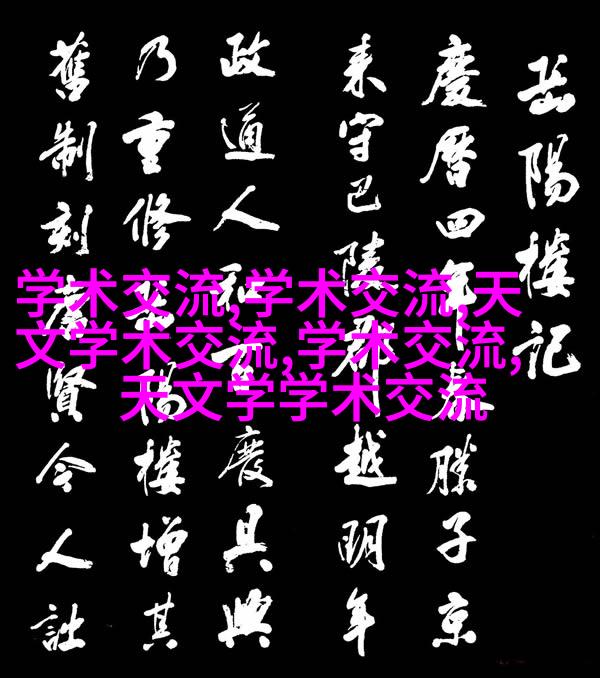 岳陽樓記
慶曆四年春滕子京
来守巴陵郡越明年
政通人和百廢具興
乃重修岳陽樓增其
舊制刻唐賢今人詩
学术交流,学术交流,天
文学术交流,学术交流,
天文学学术交流